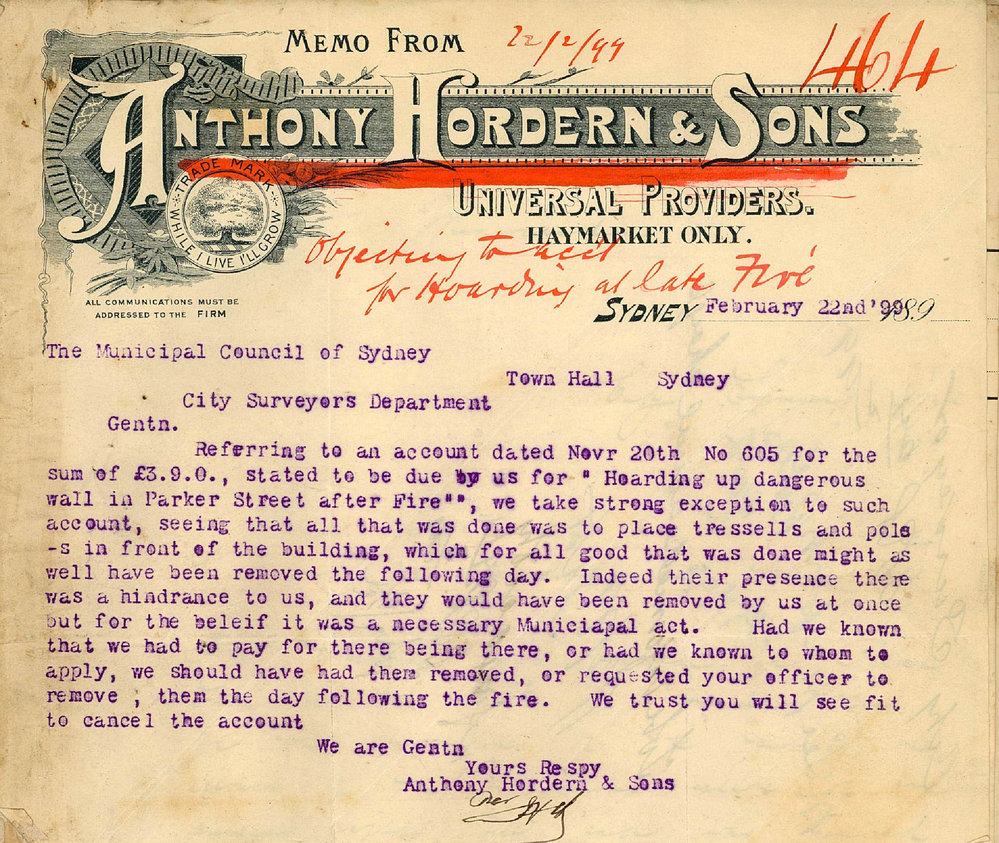 MEMO FROM
22/2/99
464
ANTHONY HORDERN & SONS
TRADE MARK
WHILE I LIVE I'LL GROW
UNIVERSAL PROVIDERS.
HAYMARKET ONLY.
Objecting to acct
for Hoarding at late Fire
ALL COMMUNICATIONS MUST BE
ADDRESSED TO THE FIRM
SYDNEY February 22nd '99 189
The Municipal Council of Sydney
Town Hall Sydney
City Surveyors Department
Gentn.
Referring to an account dated Novr 20th No 605 for the
sum of £3.9.0., stated to be due by us for " Hoarding up dangerous
wall in Parker Street after Fire"", we take strong exception to such
account, seeing that all that was done was to place tressells and pole
-s in front of the building, which for all good that was done might as
well have been removed the following day. Indeed their presence there
was a hindrance to us, and they would have been removed by us at once
but for the beleif it was a necessary Municiapal act. Had we known
that we had to pay for there being there, or had we known to whom to
apply, we should have had them removed, or requested your officer to
remove ; them the day following the fire. We trust you will see fit
to cancel the account
We are Gentn
Yours Respy
Anthony Hordern & Sons